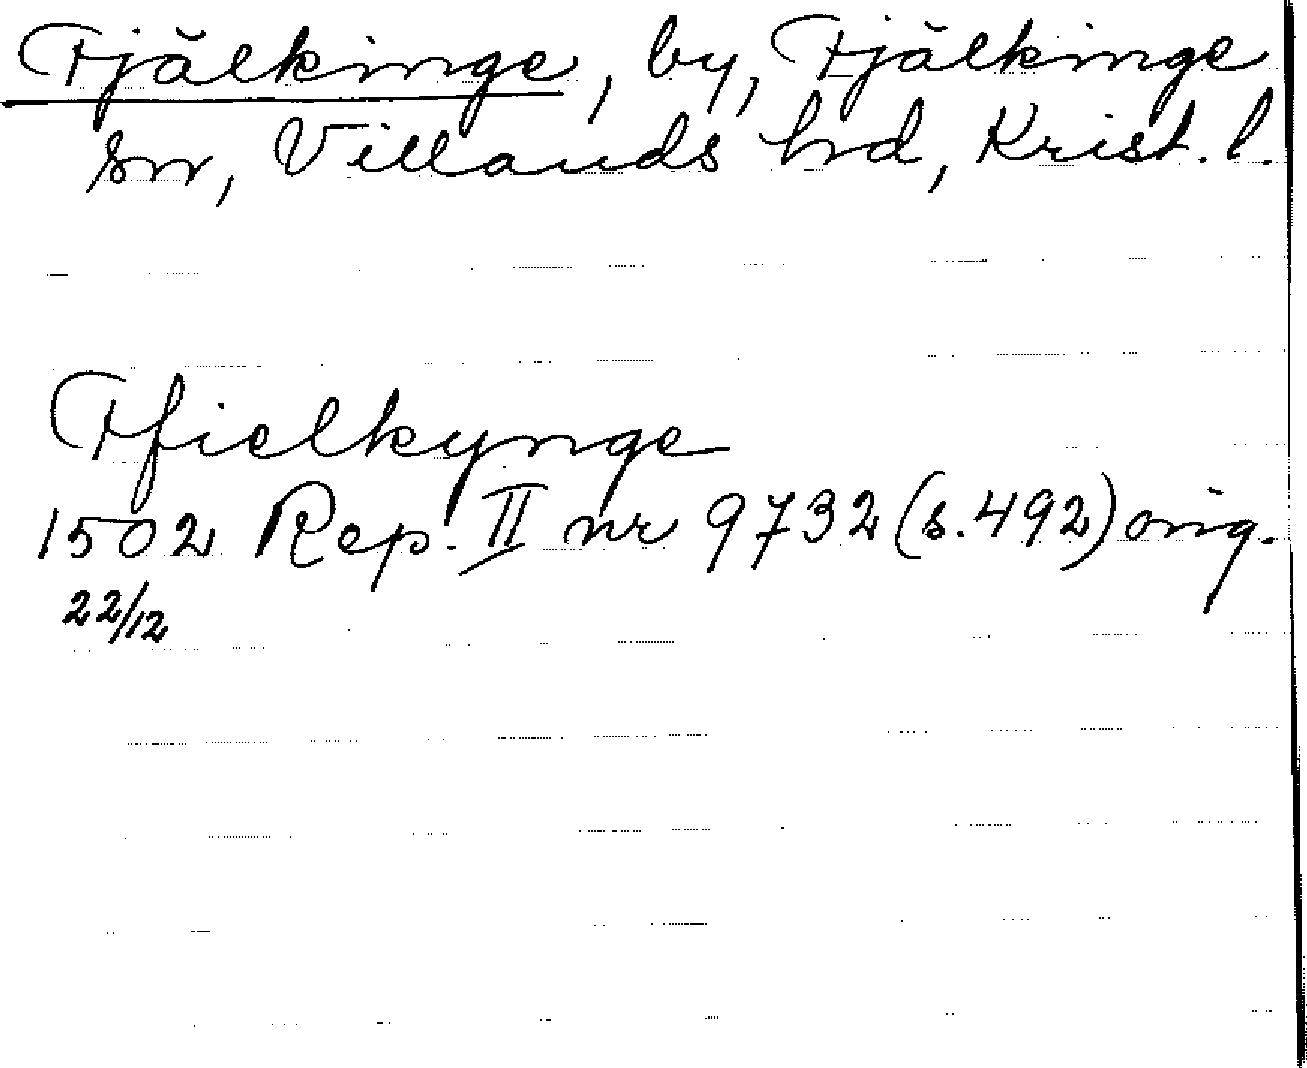 Fjälkinge, by, Fjälkinge
sn, Villands hd, Krist. l.
Ffielkynge
1502 Rep. II nr 9732 (s. 492) orig.
22/12